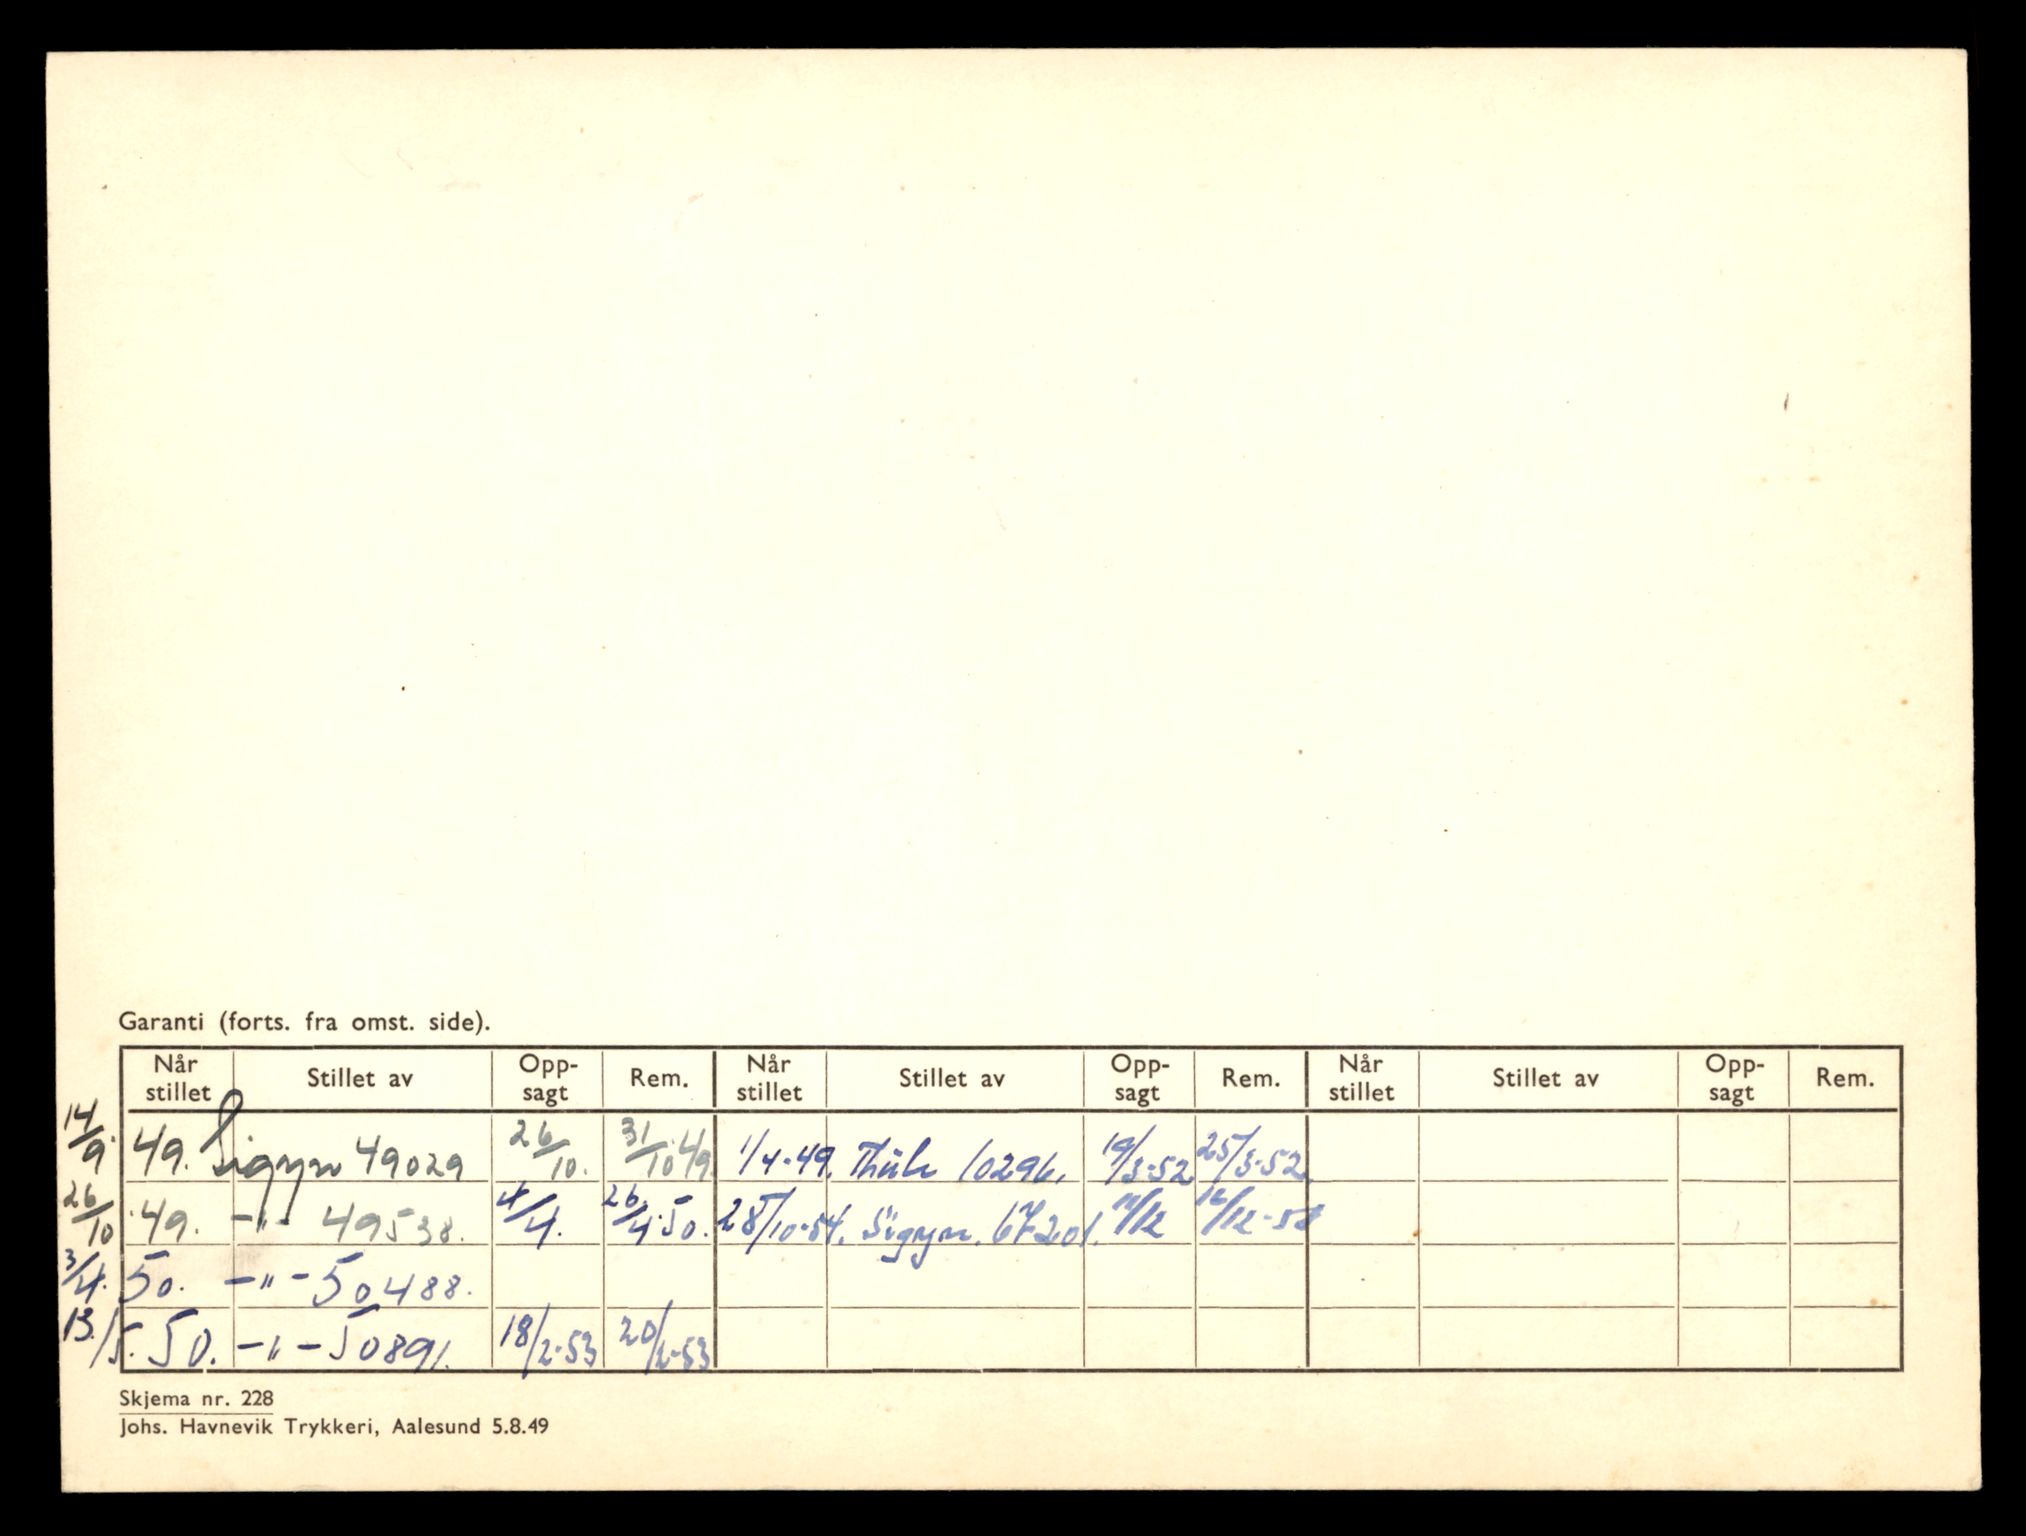 Garanti (forts. fra omst. side).
Når stillet Stillet av Opp-sagt Rem. Når stillet Stillet av Opp-sagt Rem. Når stillet Stillet av Opp-sagt Rem.
14/9. 49. Sigyn 49029 26/10. 31/10 49. 1/4-49. Thule 10296. 19/3-52 25/3-52.
26/10 49. -"- 49538. 4/4. 26/4.50. 28/10-54. Sigyn. 67201. 11/12
3/4. 50. -"- 50488.
13./5. 50. -"- 50891. 18/2-53 20/2-53
Skjema nr. 228
Johs. Havnevik Trykkeri, Aalesund 5.8.49